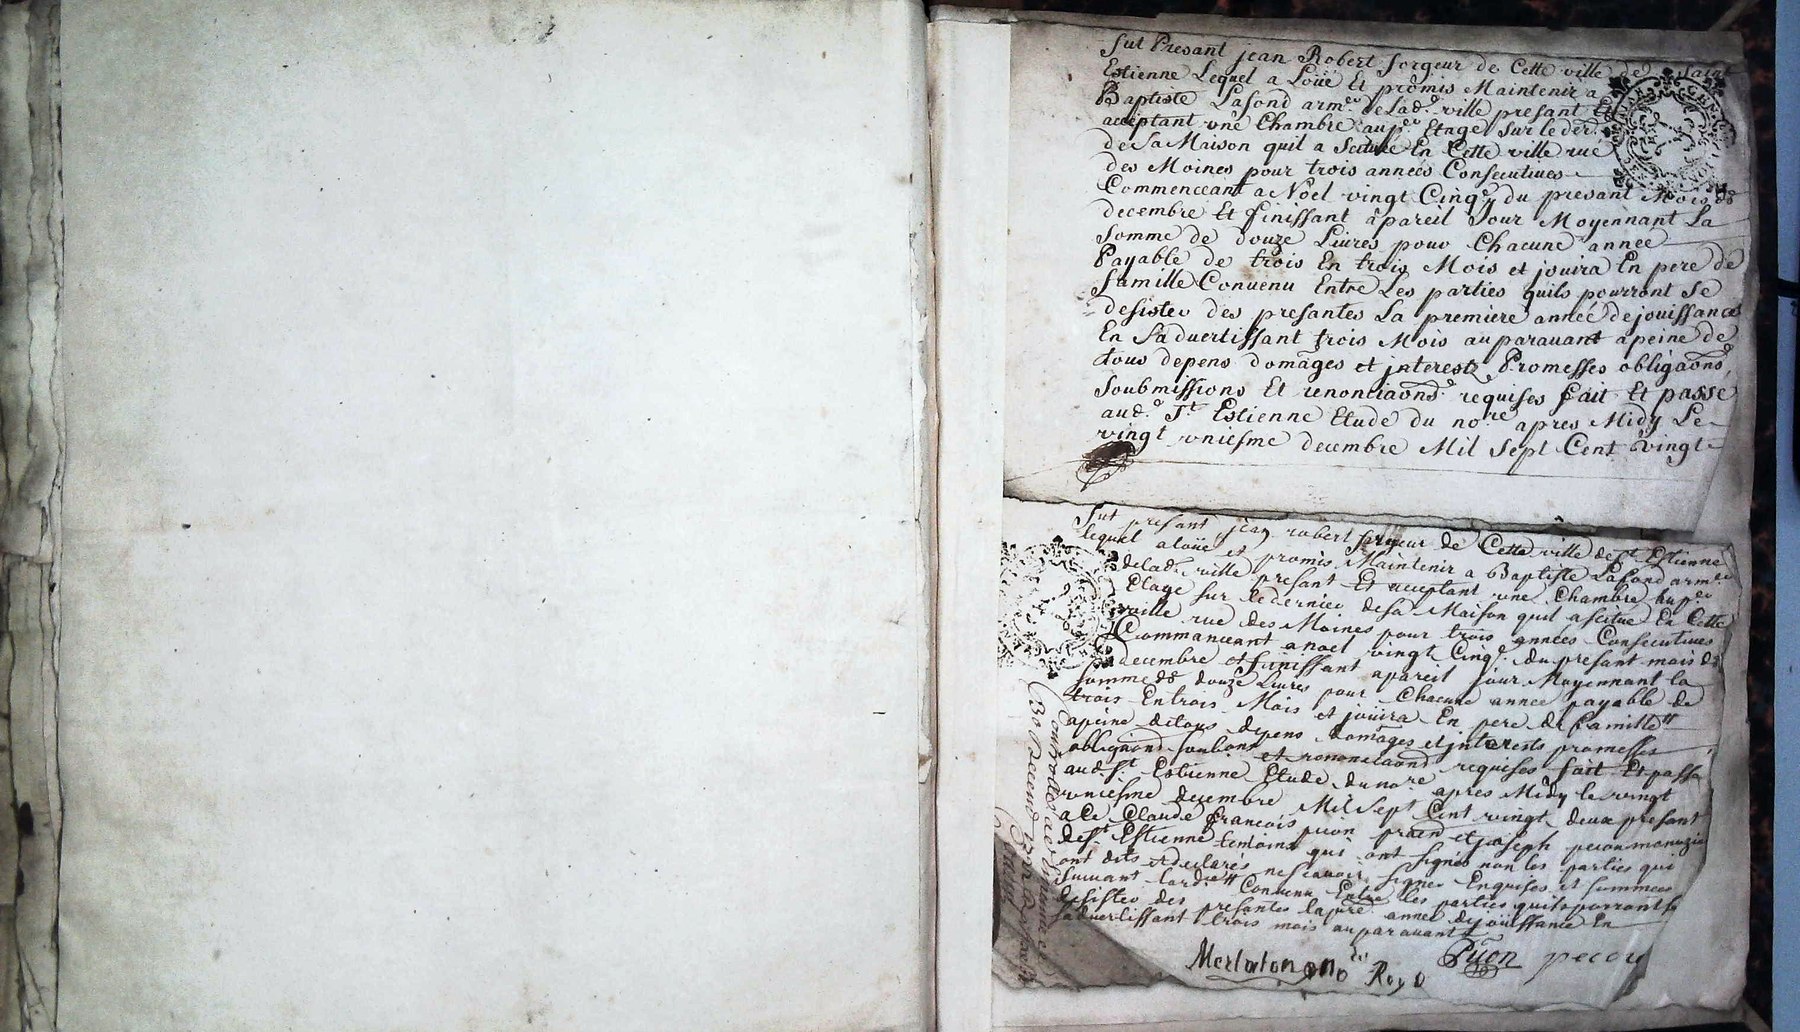 fut Presant jean Robert forgeur de Cette ville de Saint
Estienne Lequel a Loüé Et promis Maintenir a
Baptiste Lafond armer. de Lade. ville presant Et
acceptant une Chambre auper. Etage sur le der.
de sa Maison quil a scituée En Cette ville rue
des Moines pour trois années Consecutiues
Commenceant a Nöel vingt Cinqe. du presant Mois de
decembre Et finissant a pareil Jour Moyennant La
somme de douze Liures pour Chacune année
Payable de trois En trois Mois et jouira En pere de
famille Conuenu Entre Les parties quils pourront Se
desister des presantes La premiere année de jouissance
En Saduertissant trois Mois auparauant a peine de
tous depens domages et jnterests Promesses obligaons.
Soubmissions Et renontiaons. requises fait Et passé
aud. St Estienne Etude du nore apres Midy Le
vingt vniesme decembre Mil Sept Cent vingt
fut presant jean robert forgeur de Cette ville de St Estienne
lequel a loüé et promis Maintenir a Baptiste Lafond armer
delade. ville presant Et acceptant une Chambre auper
Etage sur le dernier desa Maison quil a scitue En Cette
ville rue des Moines pour trois années Consecutiues
Commanceant a noel vingt Cinqe. du presant mois de
decembre et finissant a pareil jour Moyennant la
somme de douze Liures pour Chacune année payable de
trois En trois Mois et jouira En pere de famille
a peine de tous depens domages et jnterests promesses
obligaions soubons et renonciaons requises fait Et passé
aud. St Estienne Etude du nore apres Midy le vingt
vniesme decembre Mil Sept Cent vingt deux presant
a Ce Claude francois piion et joseph pecou
de St Estienne temoins qui ont signés non les parties qui
ont dits et declarés ne scauoir signer Enquises et sommees
suiuant lord Conuenu Entre les parties quils pourront se
desister des presantes la pre année de joüissance En
saduertissant trois mois auparauant
Piion pecou
Merlaton no Roy